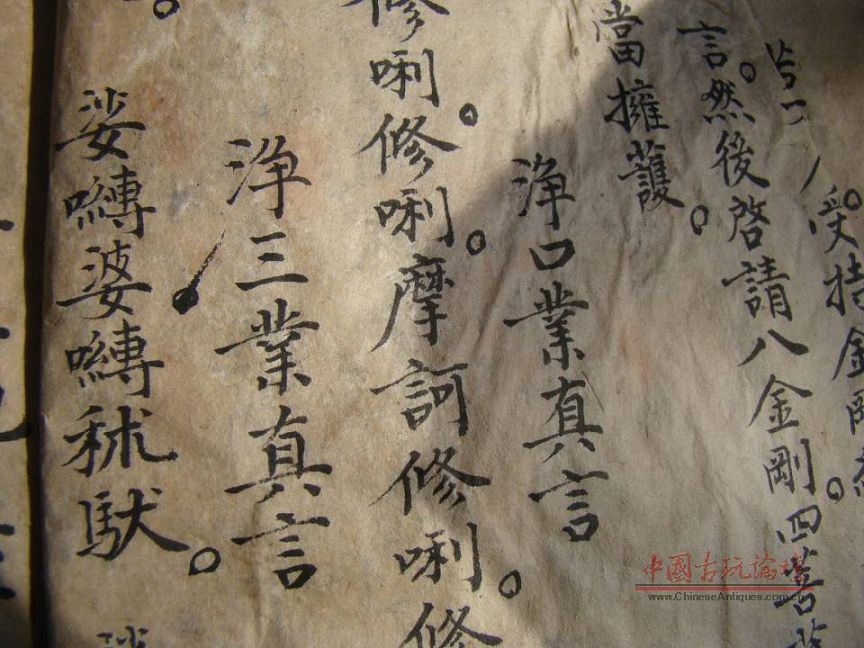 受持金剛
言。然後啓請八金剛。四菩
當擁護。
浄口業真言
修唎。修唎。摩訶修唎。修
浄三業真言
娑嚩婆嚩秫馱。
中國古玩論壇
www.ChineseAntiques.com.cn